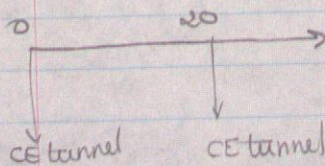 0 20
CE tunnel CE tunnel